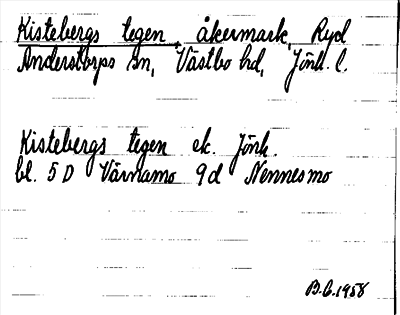 Kistebergs tegen, åkermark, Ryd
Anderstorps sn, Västbo hd, Jönk. l.
Kistebergs tegen ek. Jönk.
bl. 5 D Värnamo 9d Nennesmo
B.G. 1958